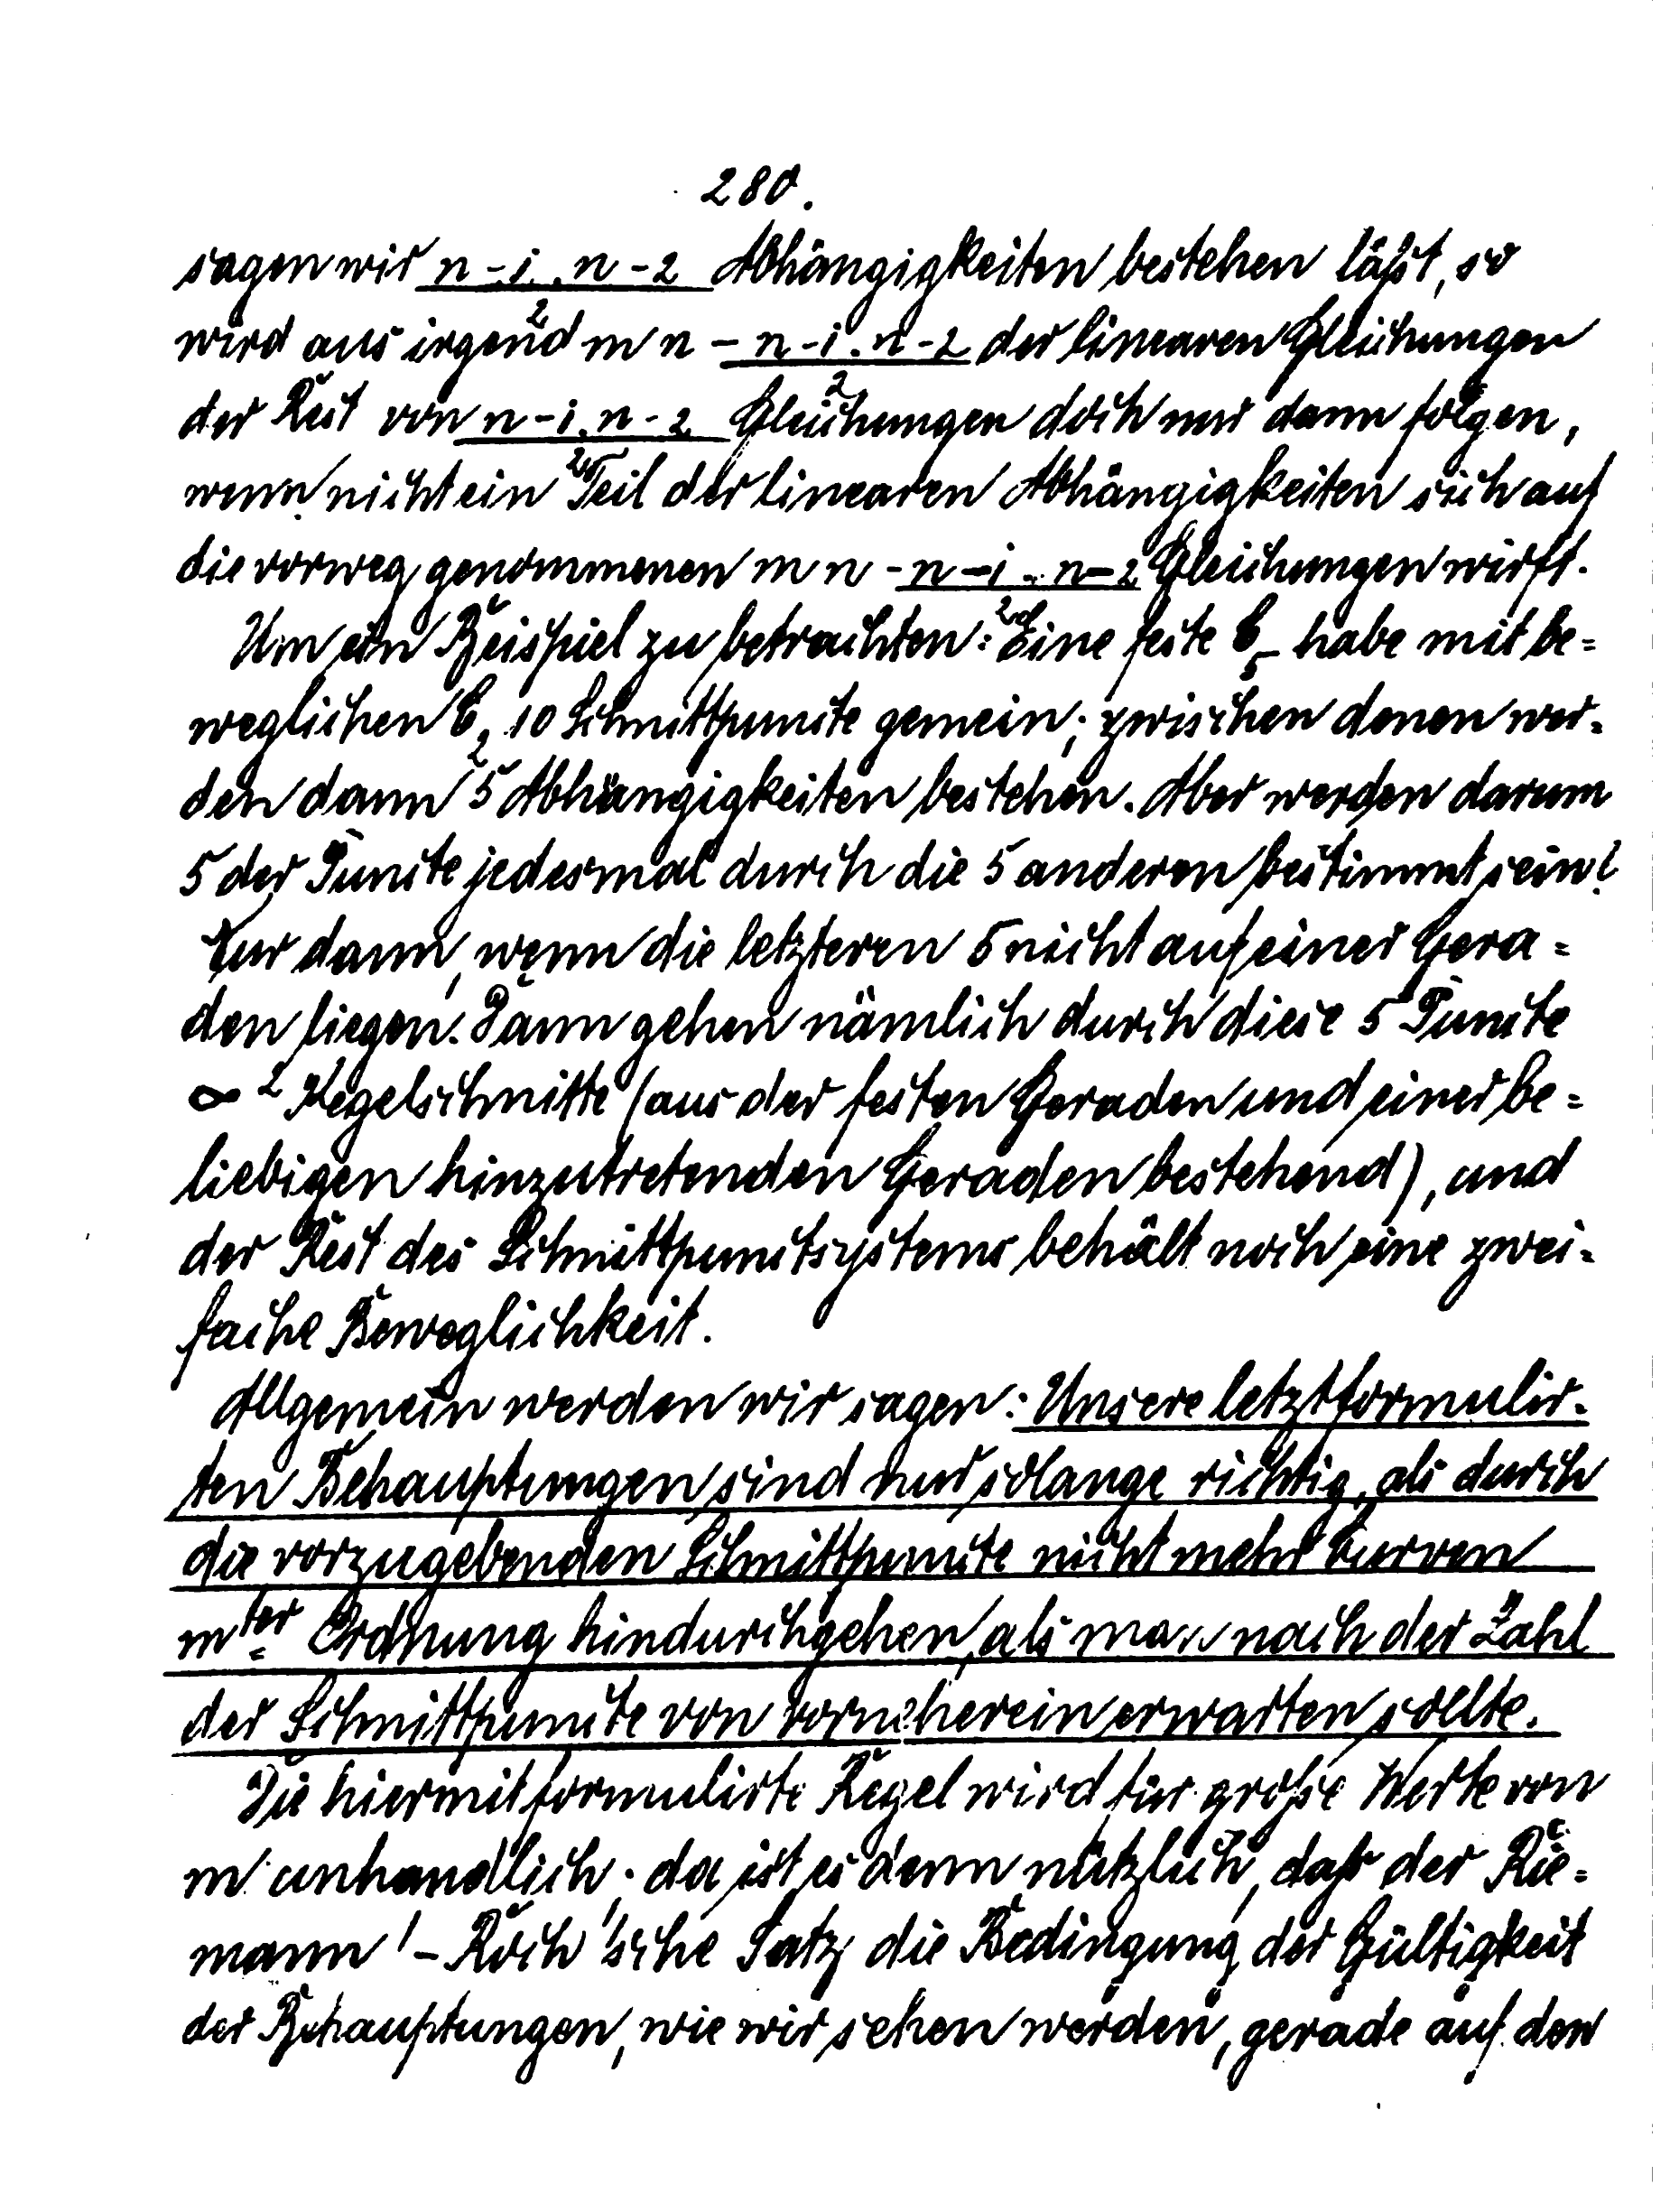 280.
sagen wir n-1 . n-2 / 2 Abhängigkeiten bestehen läßt, so
wird aus irgend m n - n-1 . n-2 / 2 der linearen Gleichungen
der Rest von n-1 . n-2 / 2 Gleichungen doch nur dann folgen,
wenn nicht ein Teil der linearen Abhängigkeiten sich auf
die vorweg genommenen m n - n-1 . n-2 / 2 Gleichungen wirft.
Um ein Beispiel zu betrachten: Eine feste C₅ habe mit be=
weglichen C₂ 10 Schnittpuncte gemein; zwischen denen wer-
den dann 5 Abhängigkeiten bestehen. Aber werden darum
5 der Puncte jedesmal durch die 5 anderen bestimmt sein?
Nur dann, wenn die letzteren 5 nicht auf einer Gera=
den liegen. Dann gehen nämlich durch diese 5 Puncte
∞² Kegelschnitte (aus der festen Geraden und einer be=
liebigen hinzutretenden Geraden bestehend), und
der Rest des Schnittpunctsystems behält noch eine zwei-
fache Beweglichkeit.
Allgemein werden wir sagen: Unsere letztformulir-
ten Behauptungen sind nur solange richtig, als durch
die vorzugebenden Schnittpuncte nicht mehr Curven
mter Ordnung hindurchgehen, als man nach der Zahl
der Schnittpuncte von vorneherein erwarten sollte.
Die hiermit formulirte Regel wird für große Werte von
m unhandlich; da ist es denn nützlich, daß der Rie=
mann'-Roch'sche Satz die Bedingung der Gültigkeit
der Behauptungen, wie wir sehen werden, gerade auf den